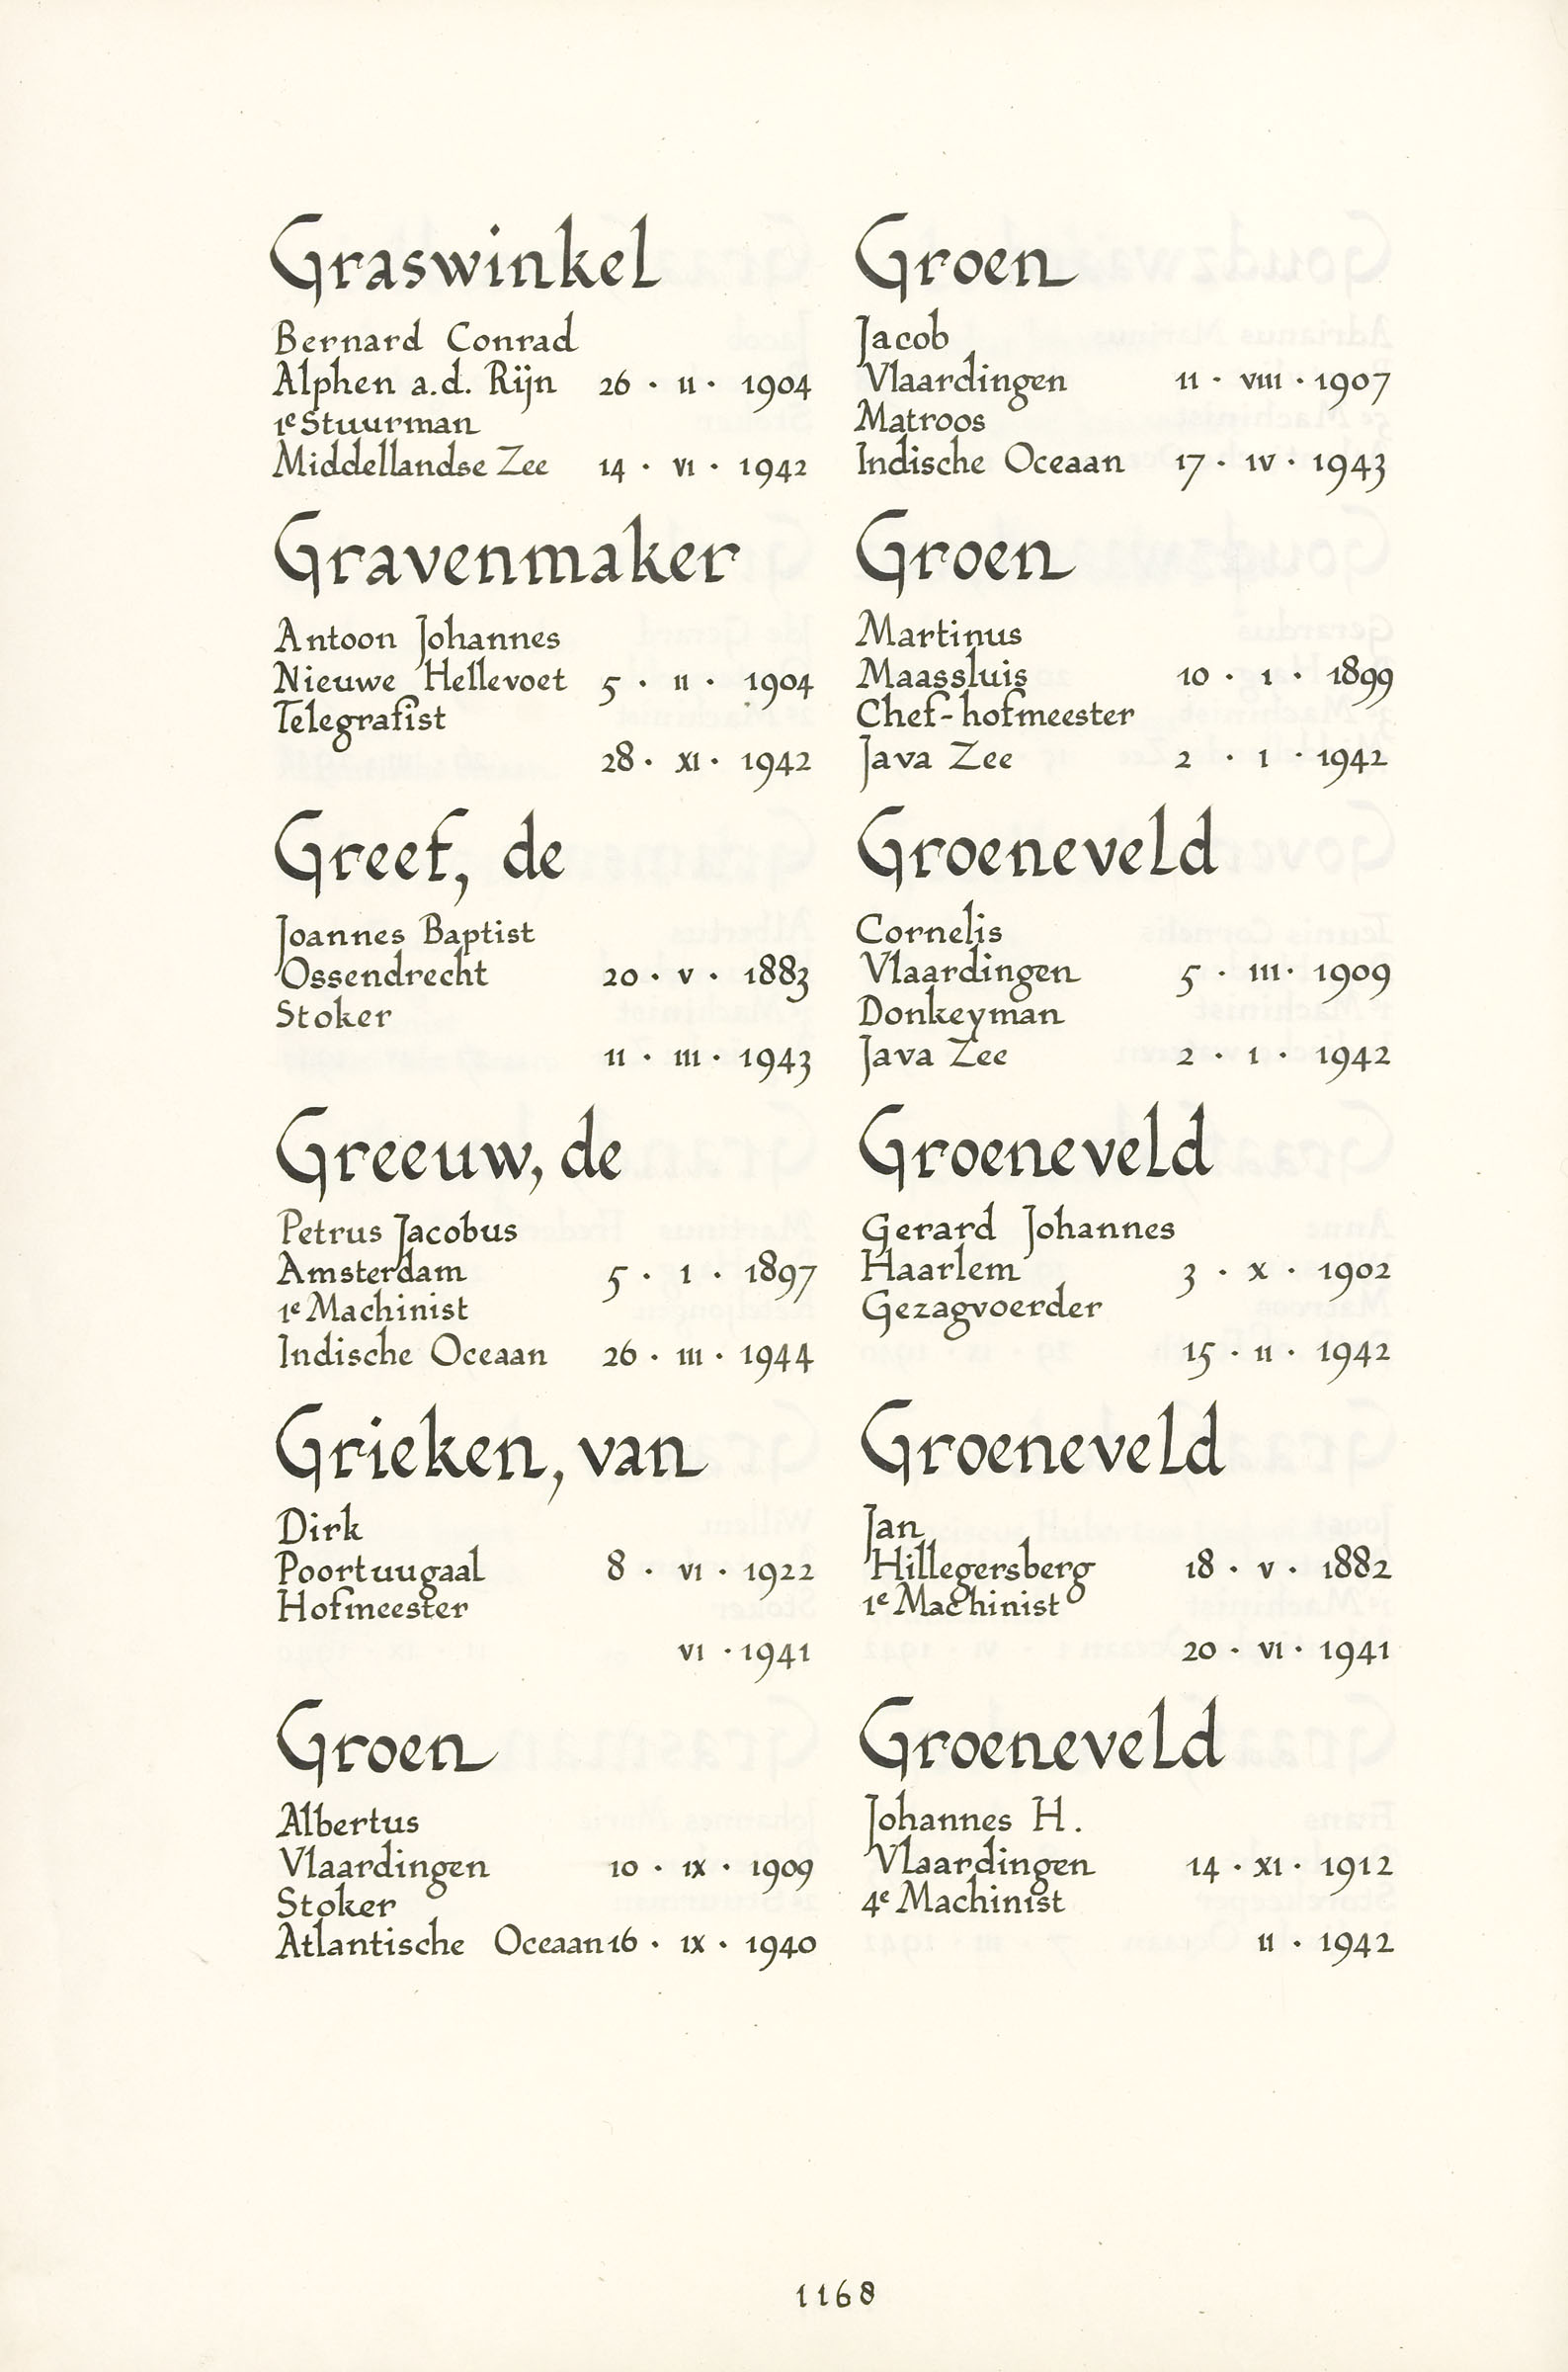 Graswinkel
Bernard Conrad
Alphen a.d. Rijn 26 · II · 1904
1e Stuurman
Middellandse Zee 14 · VI · 1942
Gravenmaker
Antoon Johannes
Nieuwe Hellevoet 5 · II · 1904
Telegrafist
28 · XI · 1942
Greef, de
Joannes Baptist
Ossendrecht 20 · V · 1883
Stoker
11 · III · 1943
Greeuw, de
Petrus Jacobus
Amsterdam 5 · I · 1897
1e Machinist
Indische Oceaan 26 · III · 1944
Grieken, van
Dirk
Poortuugaal 8 · VI · 1922
Hofmeester
VI · 1941
Groen
Albertus
Vlaardingen 10 · IX · 1909
Stoker
Atlantische Oceaan 16 · IX · 1940
Groen
Jacob
Vlaardingen 11 · VIII · 1907
Matroos
Indische Oceaan 17 · IV · 1943
Groen
Martinus
Maassluis 10 · I · 1899
Chef-hofmeester
Java Zee 2 · I · 1942
Groeneveld
Cornelis
Vlaardingen 5 · III · 1909
Donkeyman
Java Zee 2 · I · 1942
Groeneveld
Gerard Johannes
Haarlem 3 · X · 1902
Gezagvoerder
15 · II · 1942
Groeneveld
Jan
Hillegersberg 18 · V · 1882
1e Machinist
20 · VI · 1941
Groeneveld
Johannes H.
Vlaardingen 14 · XI · 1912
4e Machinist
II · 1942
1168